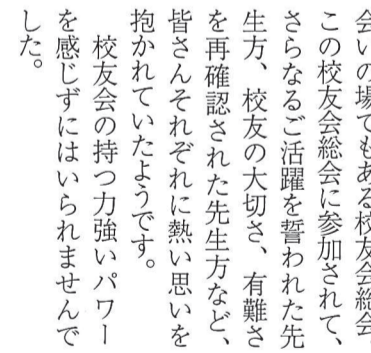 会いの場でもある校友会総会
この校友会総会に参加されて、
さらなるご活躍を誓われた先
生方、校友の大切さ、有難さ
を再確認された先生方など、
皆さんそれぞれに熱い思いを
抱かれていたようです。
校友会の持つ力強いパワー
を感じずにはいられませんで
した。